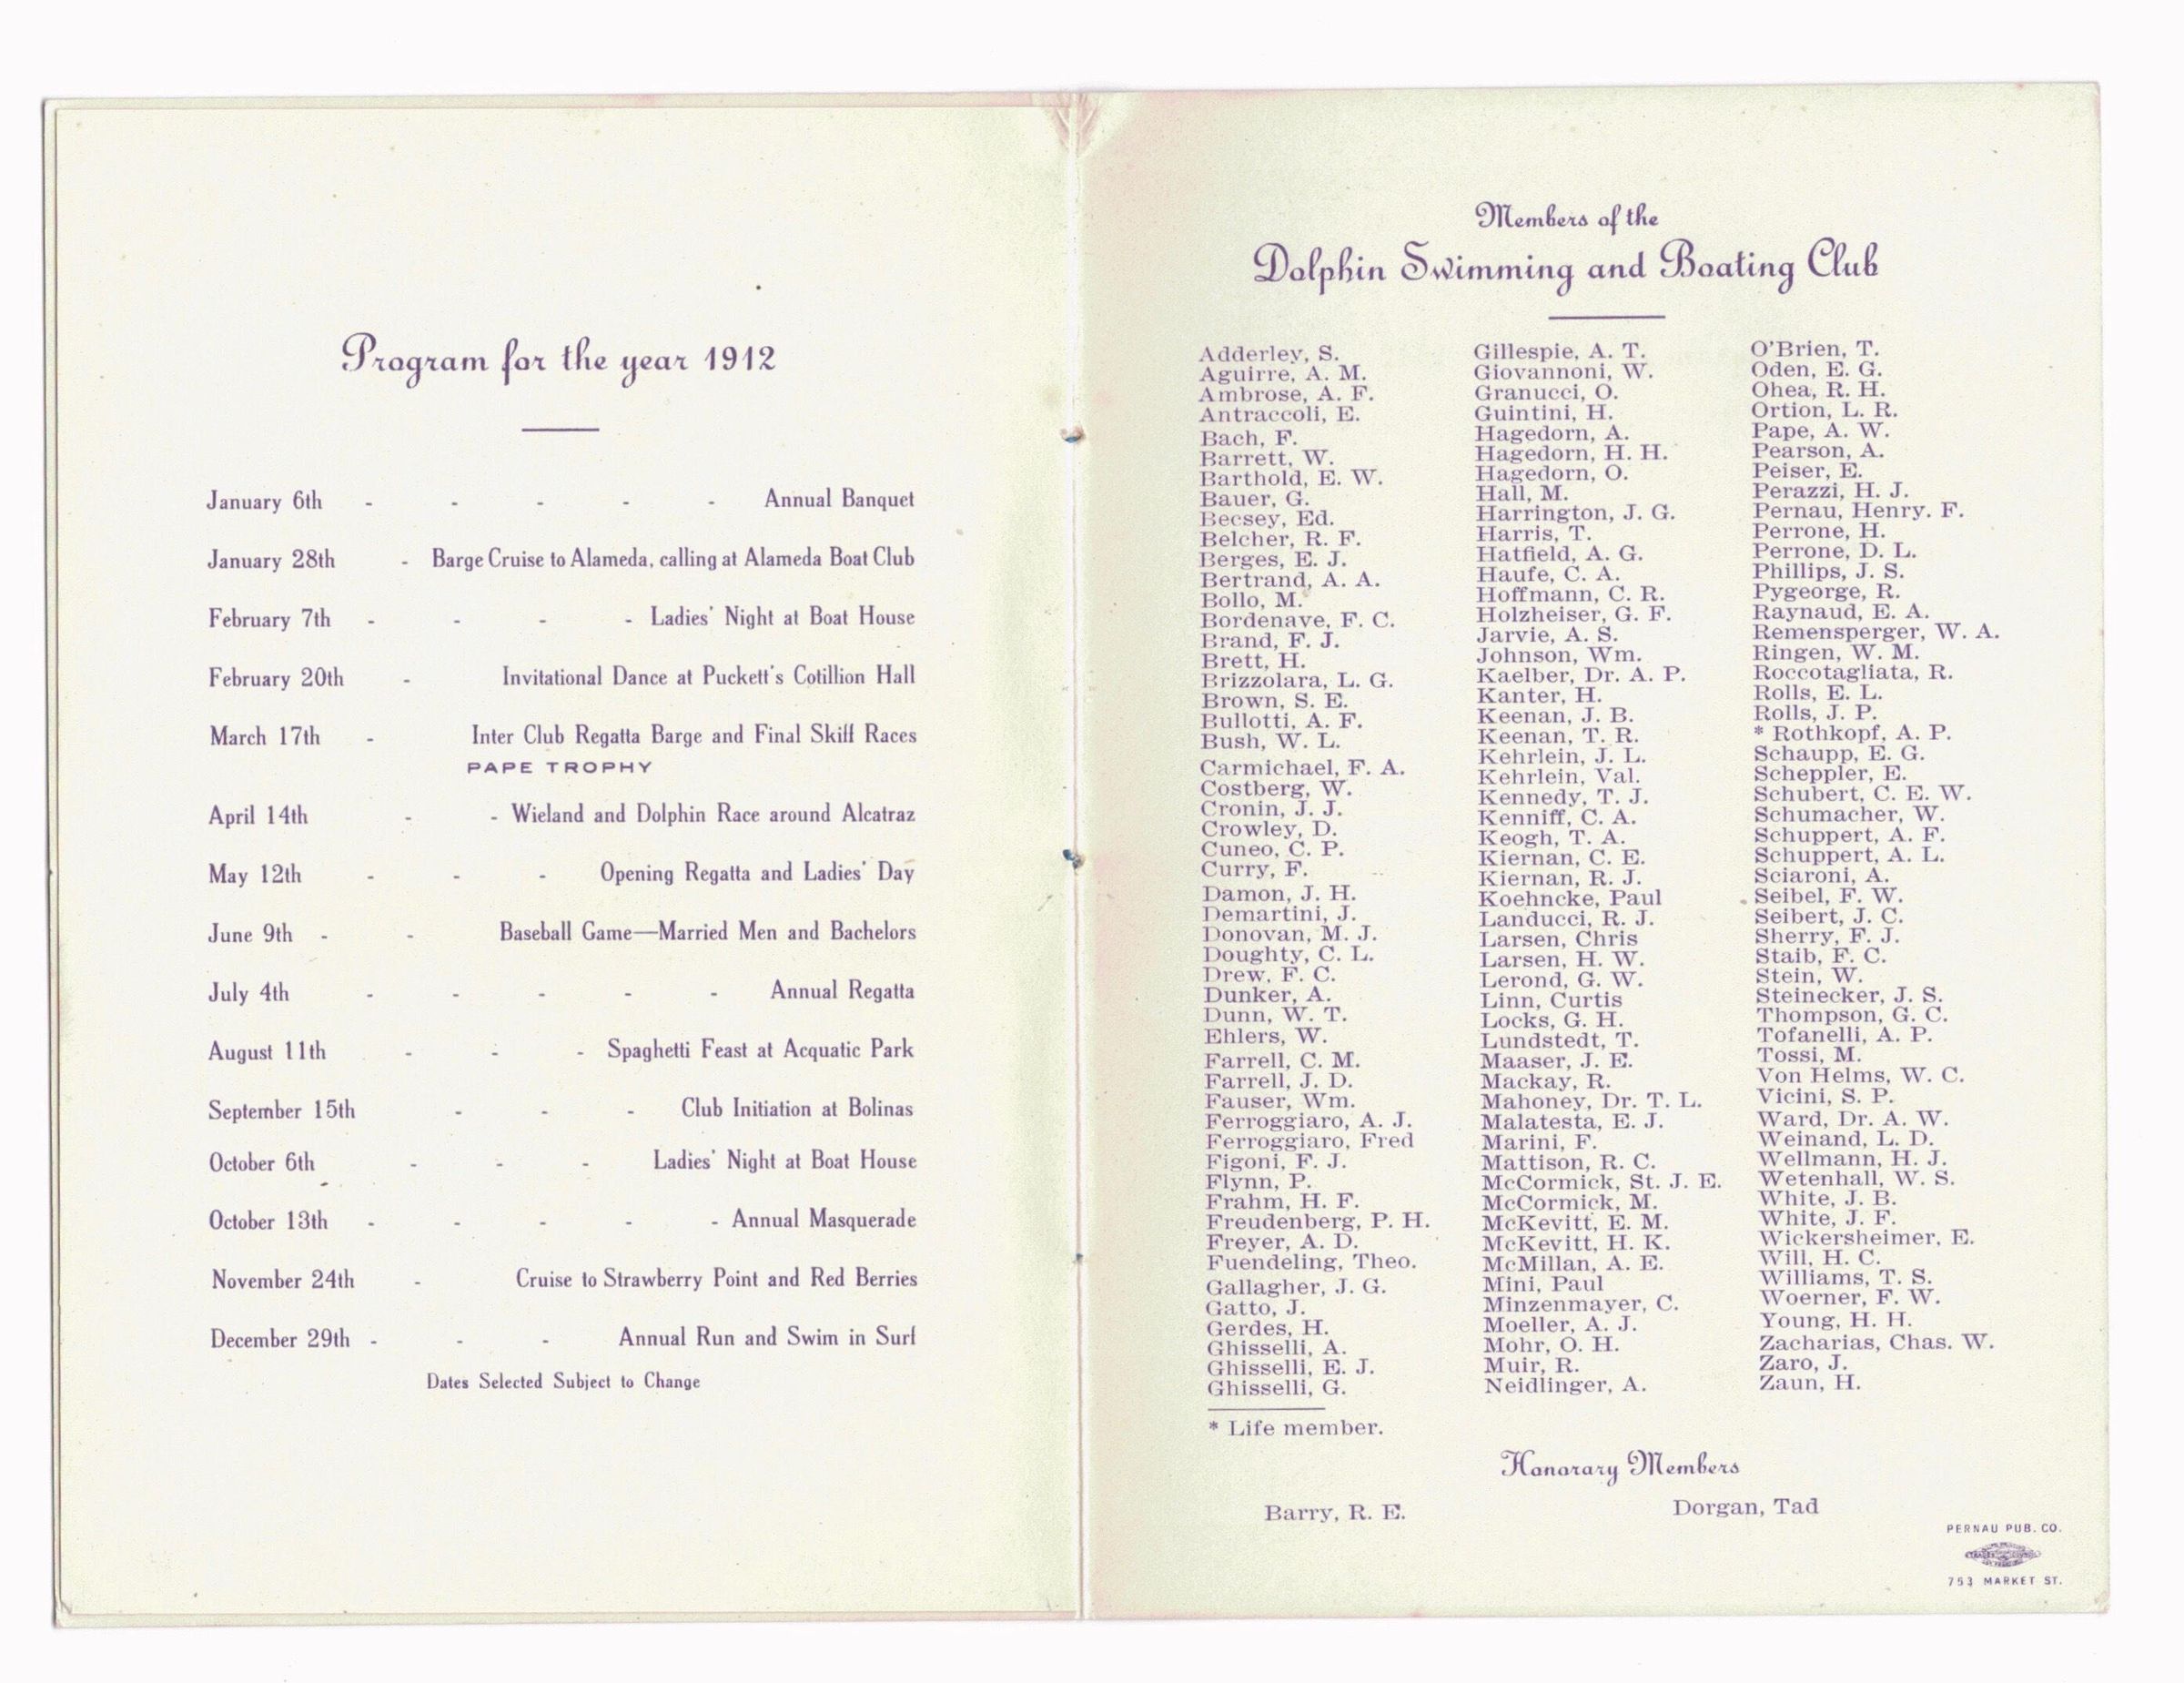 Program for the year 1912
January 6th - - - - - Annual Banquet
January 28th - Barge Cruise to Alameda, calling at Alameda Boat Club
February 7th - - - - Ladies' Night at Boat House
February 20th - Invitational Dance at Puckett's Cotillion Hall
March 17th - Inter Club Regatta Barge and Final Skiff Races
PAPE TROPHY
April 14th - - Wieland and Dolphin Race around Alcatraz
May 12th - - - Opening Regatta and Ladies' Day
June 9th - - Baseball Game—Married Men and Bachelors
July 4th - - - - - Annual Regatta
August 11th - - - Spaghetti Feast at Acquatic Park
September 15th - - - Club Initiation at Bolinas
October 6th - - - Ladies' Night at Boat House
October 13th - - - - - Annual Masquerade
November 24th - Cruise to Strawberry Point and Red Berries
December 29th - - - Annual Run and Swim in Surf
Dates Selected Subject to Change
Members of the
Dolphin Swimming and Boating Club
Adderley, S.
Aguirre, A. M.
Ambrose, A. F.
Antraccoli, E.
Bach, F.
Barrett, W.
Barthold, E. W.
Bauer, G.
Becsey, Ed.
Belcher, R. F.
Berges, E. J.
Bertrand, A. A.
Bollo, M.
Bordenave, F. C.
Brand, F. J.
Brett, H.
Brizzolara, L. G.
Brown, S. E.
Bullotti, A. F.
Bush, W. L.
Carmichael, F. A.
Costberg, W.
Cronin, J. J.
Crowley, D.
Cuneo, C. P.
Curry, F.
Damon, J. H.
Demartini, J.
Donovan, M. J.
Doughty, C. L.
Drew, F. C.
Dunker, A.
Dunn, W. T.
Ehlers, W.
Farrell, C. M.
Farrell, J. D.
Fauser, Wm.
Ferroggiaro, A. J.
Ferroggiaro, Fred
Figoni, F. J.
Flynn, P.
Frahm, H. F.
Freudenberg, P. H.
Freyer, A. D.
Fuendeling, Theo.
Gallagher, J. G.
Gatto, J.
Gerdes, H.
Ghisselli, A.
Ghisselli, E. J.
Ghisselli, G.
Gillespie, A. T.
Giovannoni, W.
Granucci, O.
Guintini, H.
Hagedorn, A.
Hagedorn, H. H.
Hagedorn, O.
Hall, M.
Harrington, J. G.
Harris, T.
Hatfield, A. G.
Haufe, C. A.
Hoffmann, C. R.
Holzheiser, G. F.
Jarvie, A. S.
Johnson, Wm.
Kaelber, Dr. A. P.
Kanter, H.
Keenan, J. B.
Keenan, T. R.
Kehrlein, J. L.
Kehrlein, Val.
Kennedy, T. J.
Kenniff, C. A.
Keogh, T. A.
Kiernan, C. E.
Kiernan, R. J.
Koehncke, Paul
Landucci, R. J.
Larsen, Chris
Larsen, H. W.
Lerond, G. W.
Linn, Curtis
Locks, G. H.
Lundstedt, T.
Maaser, J. E.
Mackay, R.
Mahoney, Dr. T. L.
Malatesta, E. J.
Marini, F.
Mattison, R. C.
McCormick, St. J. E.
McCormick, M.
McKevitt, E. M.
McKevitt, H. K.
McMillan, A. E.
Mini, Paul
Minzenmayer, C.
Moeller, A. J.
Mohr, O. H.
Muir, R.
Neidlinger, A.
O'Brien, T.
Oden, E. G.
Ohea, R. H.
Ortion, L. R.
Pape, A. W.
Pearson, A.
Peiser, E.
Perazzi, H. J.
Pernau, Henry. F.
Perrone, H.
Perrone, D. L.
Phillips, J. S.
Pygeorge, R.
Raynaud, E. A.
Remensperger, W. A.
Ringen, W. M.
Roccotagliata, R.
Rolls, E. L.
Rolls, J. P.
* Rothkopf, A. P.
Schaupp, E. G.
Scheppler, E.
Schubert, C. E. W.
Schumacher, W.
Schuppert, A. F.
Schuppert, A. L.
Sciaroni, A.
Seibel, F. W.
Seibert, J. C.
Sherry, F. J.
Staib, F. C.
Stein, W.
Steinecker, J. S.
Thompson, G. C.
Tofanelli, A. P.
Tossi, M.
Von Helms, W. C.
Vicini, S. P.
Ward, Dr. A. W.
Weinand, L. D.
Wellmann, H. J.
Wetenhall, W. S.
White, J. B.
White, J. F.
Wickersheimer, E.
Will, H. C.
Williams, T. S.
Woerner, F. W.
Young, H. H.
Zacharias, Chas. W.
Zaro, J.
Zaun, H.
* Life member.
Honorary Members
Barry, R. E. Dorgan, Tad
PERNAU PUB. CO.
753 MARKET ST.